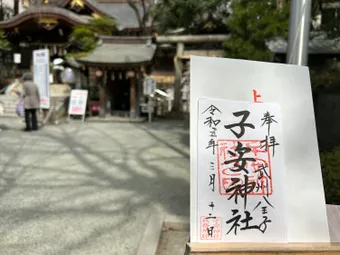 上
奉拝
武州八王子
子安神社
令和五年三月十二日